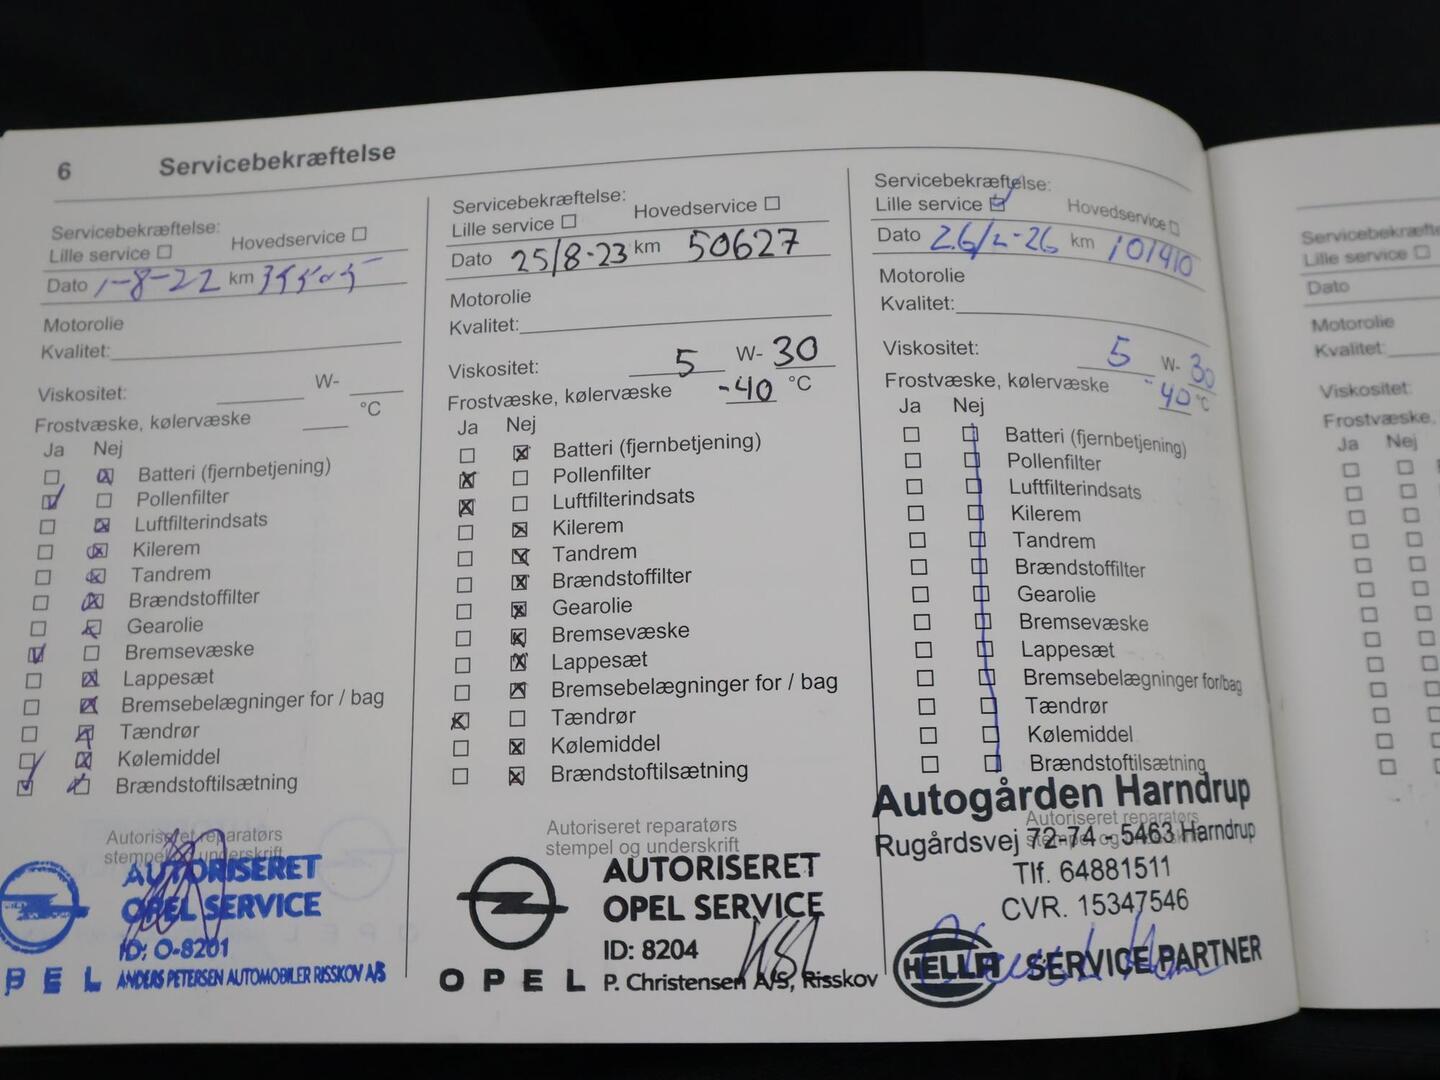 6 Servicebekræftelse
Servicebekræftelse:
Lille service Hovedservice
Dato 1-8-22 km
Motorolie
Kvalitet:
Viskositet: W-
Frostvæske, kølervæske °C
Ja Nej
Batteri (fjernbetjening)
Pollenfilter
Luftfilterindsats
Kilerem
Tandrem
Brændstoffilter
Gearolie
Bremsevæske
Lappesæt
Bremsebelægninger for / bag
Tændrør
Kølemiddel
Brændstoftilsætning
Autoriseret reparatørs
stempel og underskrift
AUTORISERET
OPEL SERVICE
ID: O-8201
PEL ANDERS PETERSEN AUTOMOBILER RISSKOV A/S
Servicebekræftelse:
Lille service Hovedservice
Dato 25/8-23 km 50627
Motorolie
Kvalitet:
Viskositet: 5 W-30
Frostvæske, kølervæske -40 °C
Ja Nej
Batteri (fjernbetjening)
Pollenfilter
Luftfilterindsats
Kilerem
Tandrem
Brændstoffilter
Gearolie
Bremsevæske
Lappesæt
Bremsebelægninger for / bag
Tændrør
Kølemiddel
Brændstoftilsætning
Autoriseret reparatørs
stempel og underskrift
AUTORISERET
OPEL SERVICE
ID: 8204
OPEL P. Christensen A/S, Risskov
Servicebekræftelse:
Lille service Hovedservice
Dato 26/2-26 km 101410
Motorolie
Kvalitet:
Viskositet: 5 W-30
Frostvæske, kølervæske -40 °C
Ja Nej
Batteri (fjernbetjening)
Pollenfilter
Luftfilterindsats
Kilerem
Tandrem
Brændstoffilter
Gearolie
Bremsevæske
Lappesæt
Bremsebelægninger for/bag
Tændrør
Kølemiddel
Brændstoftilsætning
Autoriseret reparatørs
stempel og
Autogården Harndrup
Rugårdsvej 72-74 - 5463 Harndrup
Tlf. 64881511
CVR. 15347546
HELLA SERVICE PARTNER
Lille service
Dato
Motorolie
Kvalitet:
Viskositet:
Frostvæske,
Ja Nej